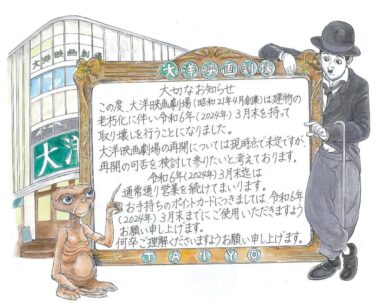 大洋映画劇場
大洋映画劇場
大洋
大切なお知らせ
この度、大洋映画劇場(昭和21年4月創業)は建物の
老朽化に伴い令和6年(2024年)3月末を持って
取り壊しを行うことになりました。
大洋映画劇場の再開については現時点で未定ですが、
再開の可否を検討して参りたいと考えております。
令和6年(2024年)3月末迄は
通常通り営業を続けてまいります。
お手持ちのポイントカードにつきましては、令和6年
(2024年)3月末までにご使用いただきますよう
お願い申し上げます。
何卒ご理解くださいますようお願い申し上げます。
TAIYO